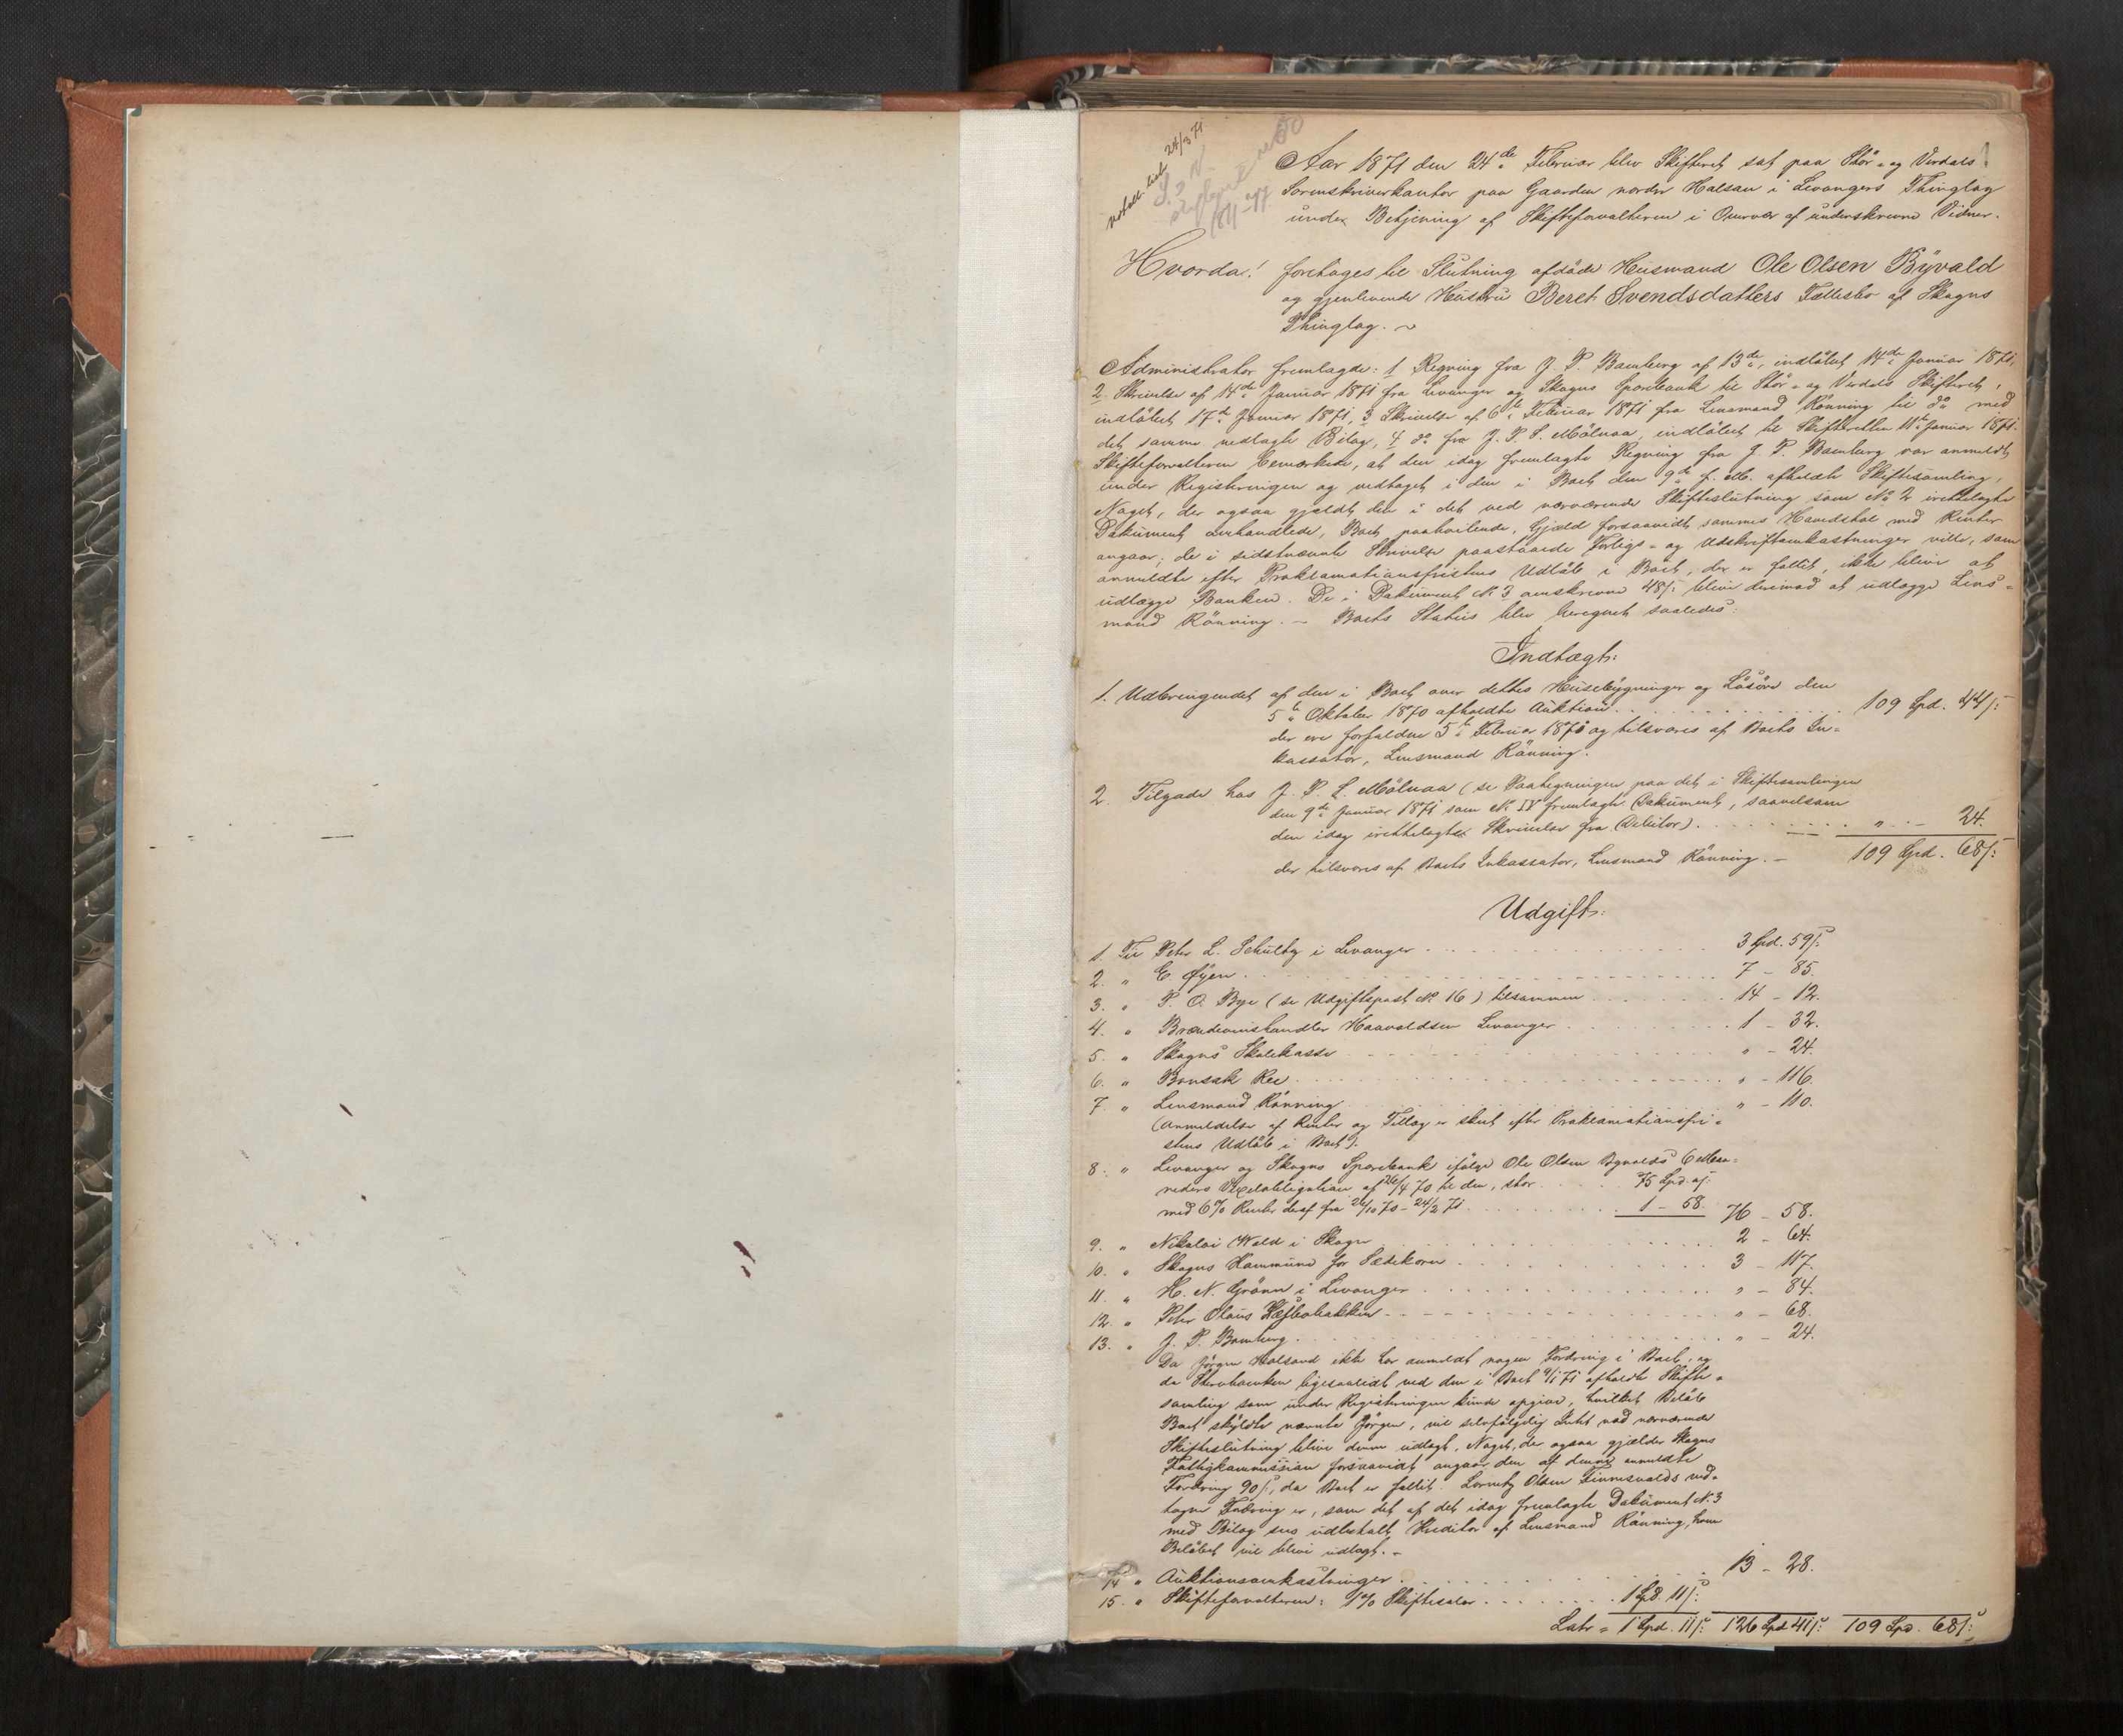 Notert lista 24/3 71
Aar 1871 den 24de Februar blev Skifteret sat paa Stør- og Værdals
Sorenskriverkontor paa Gaarden nordre Halsan i Levangers Thinglag
under Betjening af Skifteforvalteren i Overvær af underskrevne Vidner.
Hvorda! foretages til Slutning afdøde Husmand Ole Olsen Byvald
og gjenlevende Hustru Beret Svendsdatters Fællesbo af Skogns
Thinglag. ~
Administrator fremlagde: 1 Regning fra J. P. Bamberg af 13de, indløbet 14de Januar 1871,
2 Skrivelse af 14de Januar 1871 fra Levanger og Skogns Sparebank til Stør- og Værdals Skifteret,
indløbet 17de Januar 1871, 3 Skrivelse af 6te Februar 1871 fra Lensmand Rønning til do med
det samme vedlagte Bilag, 4 do fra J. P. S. Mølnaa, indløbet til Skifteretten 11te Januar 1871.
Skifteforvalteren bemærkede, at den idag fremlagte Regning fra J. P. Bamberg var anmeldt
under Registreringen og vedtaget i den i Boet den 9de f. M. afholdte Skiftesamling,
Noget, der ogsaa gjaldt den i det ved nærværende Skifteslutning som No 2 irettelagte
Dokument omhandlede, Boet paahvilende, Gjæld forsaavidt sammes Hovedstol med Renter
angaar; de i sidstnævnte Skrivelse paastaaede Forligs- og Udskriftomkostninger ville, som
anmeldte efter Proklamationsfristens Udløb i Boet, der er fallit, ikke blive at
udlægge Banken. De i Dokument No 3 omskrevne 48 s. blive derimod at udlægge Lens-
mand Rønning. – Boets Status blev beregnet saaledes:
Indtægt:
1. Udbringendet af den i Boet over dettes Husebygninger og Løsøre den
5te Oktober 1870 afholdte Auktion . . . 109 Spd. 44 s:
der ere forfaldne 5te Februar 1871 og tilsvares af Boets In-
kassator, Lensmand Rønning.
2. Tilgode hos J. P. S. Mølnaa (se Paategningen paa det i Skiftesamlingen
den 9de Januar 1871 som No IV fremlagte Dokument, saavelsom
den idag irettelagte Skrivelse fra Debitor) . . . " – 24.
der tilsvares af Boets Inkassator, Lensmand Rønning. – 109 Spd. 68 s:
Udgift:
1. Til Peter L. Schultz i Levanger . . . 3 Spd. 59 s:
2. " E. Øyen . . . 7 – 85.
3. " P. O. Bye (se Udgiftspost No 16) tilsammen . . . 14 – 12.
4. " Brændevinshandler Haavaldsen Levanger . . . 1 – 32.
5. " Skogns Skolekasse . . . " – 24.
6. " Bonsak Ree . . . " – 116.
7. " Lensmand Rønning . . . " – 110.
(Anmeldelse af Renter og Tillæg er skeet efter Proklamationsfri-
stens Udløb i Boet).
8. " Levanger og Skogns Sparebank ifølge Ole Olsen Byvalds 6 Maa-
neders Vexelobligation af 26/4 70 til den, stor . . . 75 Spd. s:
med 6% Renter deraf fra 26/10 70 – 24/2 71 . . . 1 – 58. 76 – 58.
9. " Nikolai Wold i Skogn . . . 2 – 64.
10. " Skogns Kommune for Sædekorn . . . 3 – 117.
11. " H. N. Grønn i Levanger . . . " – 84.
12. " Peter Olaus . . . " – 68.
13. " J. P. Bamberg . . . " – 24.
Da Jørgen Halsand ikke har anmeldt nogen Fordring i Boet, og
da Stervboenken ligesaalidt ved den i Boet 9/1 71 afholdte Skifte-
samling som under Registreringen kunde opgive, hvilket Beløb
Boet skyldte nævnte Jørgen, vil selvfølgelig Intet ved nærværende
Skifteslutning blive denne udlagt, Noget, der ogsaa gjælder Skogns
Fattigkommission forsaavidt angaar den af denne anmeldte
Fordring 90 s., da Boet er fallit. Lorentz Olsen Finnesvalds ved-
tagne Fordring er, som det af det idag fremlagte Dokument No 3
med Bilag sees udbetalt Kreditor af Lensmand Rønning, hvem
Beløbet vil blive udlagt. –
14 " Auktionsomkostninger . . . 13 – 28.
15. " Skifteforvalteren: 1% Skiftesalær . . . 1 Spd. 11 s:
Latr – 1 Spd. 11 s: 126 Spd 41 s: 109 Spd. 68 s: